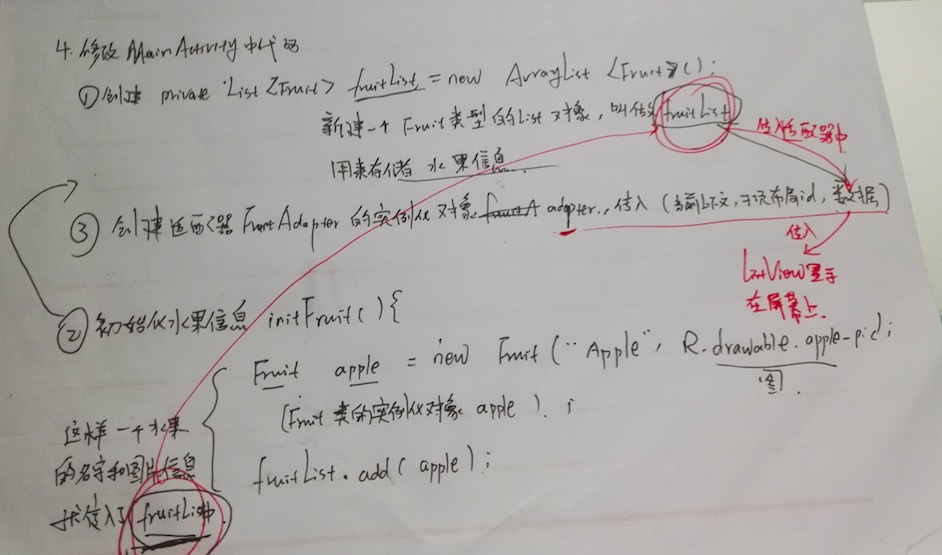 4. 修改 MainActivity中代码
① 创建 private List<Fruit> fruitList = new ArrayList <Fruit>();
新建一个 Fruit类型的List 对象，叫做 fruitList
用来存储 水果信息
传入适配器中
③ 创建适配器 FruitAdapter 的实例化对象 adapter，传入 (当前上下文，子项布局id，数据)
传入
ListView显示
在屏幕上.
② 初始化水果信息 initFruit(){
Fruit apple = new Fruit("Apple", R.drawable.apple-pic);
图
(Fruit 类的实例化对象 apple);
fruitList.add(apple);
这样一个水果
的名字和图片信息
就传入了 fruitList中